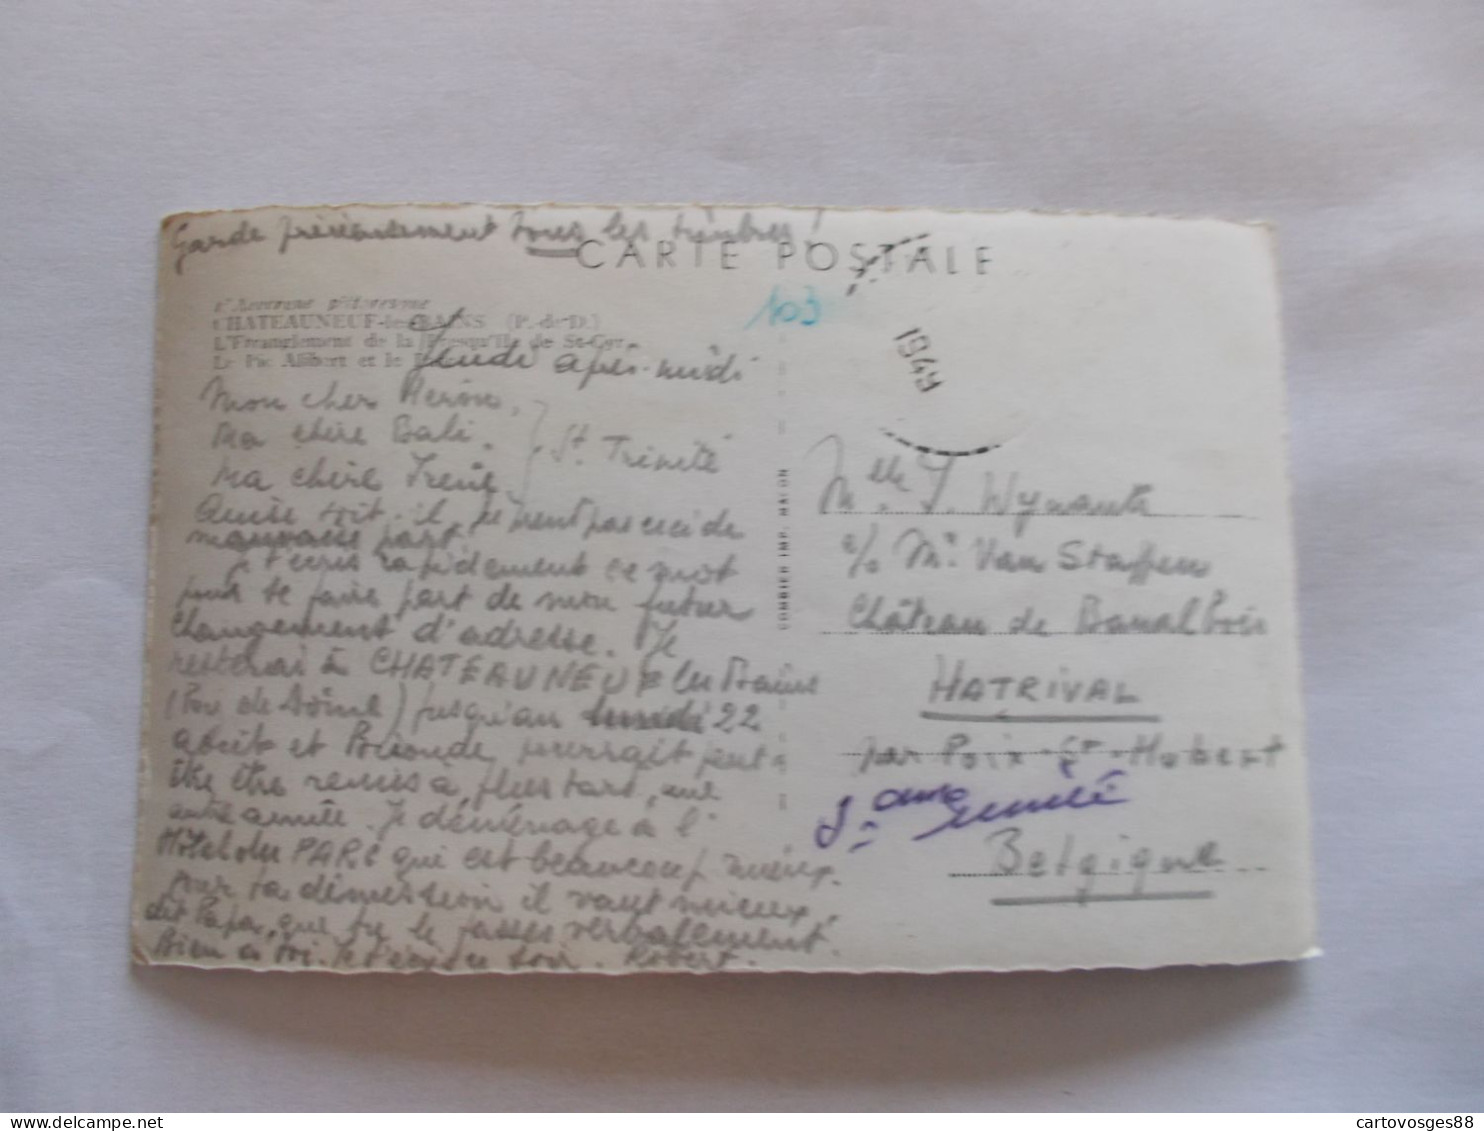 Garde précieusement tous les timbres!
CARTE POSTALE
L'Auvergne pittoresque
103
CHATEAUNEUF-les-BAINS (P.-de-D.)
L'Etranglement de la Presqu'Ile de St-Cyr
Le Pic Alibert et le
1949
Jeudi après-midi
Mon cher
Ma chère Bali.
St Trinité
Ma chère Irène
Ainsi soit-il. Ne prend pas ceci de
mauvaise part.
J'écris rapidement ce mot
pour te faire part de mon futur
changement d'adresse. Je
resterai à CHATEAUNEUF les Bains
(Puy de Dôme) jusqu'au lundi 22
août et Brioude pourrait peut-
être être remis à plus tard, une
autre année. Je déménage à l'
Hôtel du PARC qui est beaucoup mieux.
Pour ta démission il vaut mieux,
dit Papa, que tu le fasses verbalement.
Bien à toi. Robert.
COMBIER IMP. MACON
Melle I. Wynants
c/o Mr. Van Staffen
Château de Banalbois
HATRIVAL
par Poix-St-Hubert
Belgique
cartovosges88